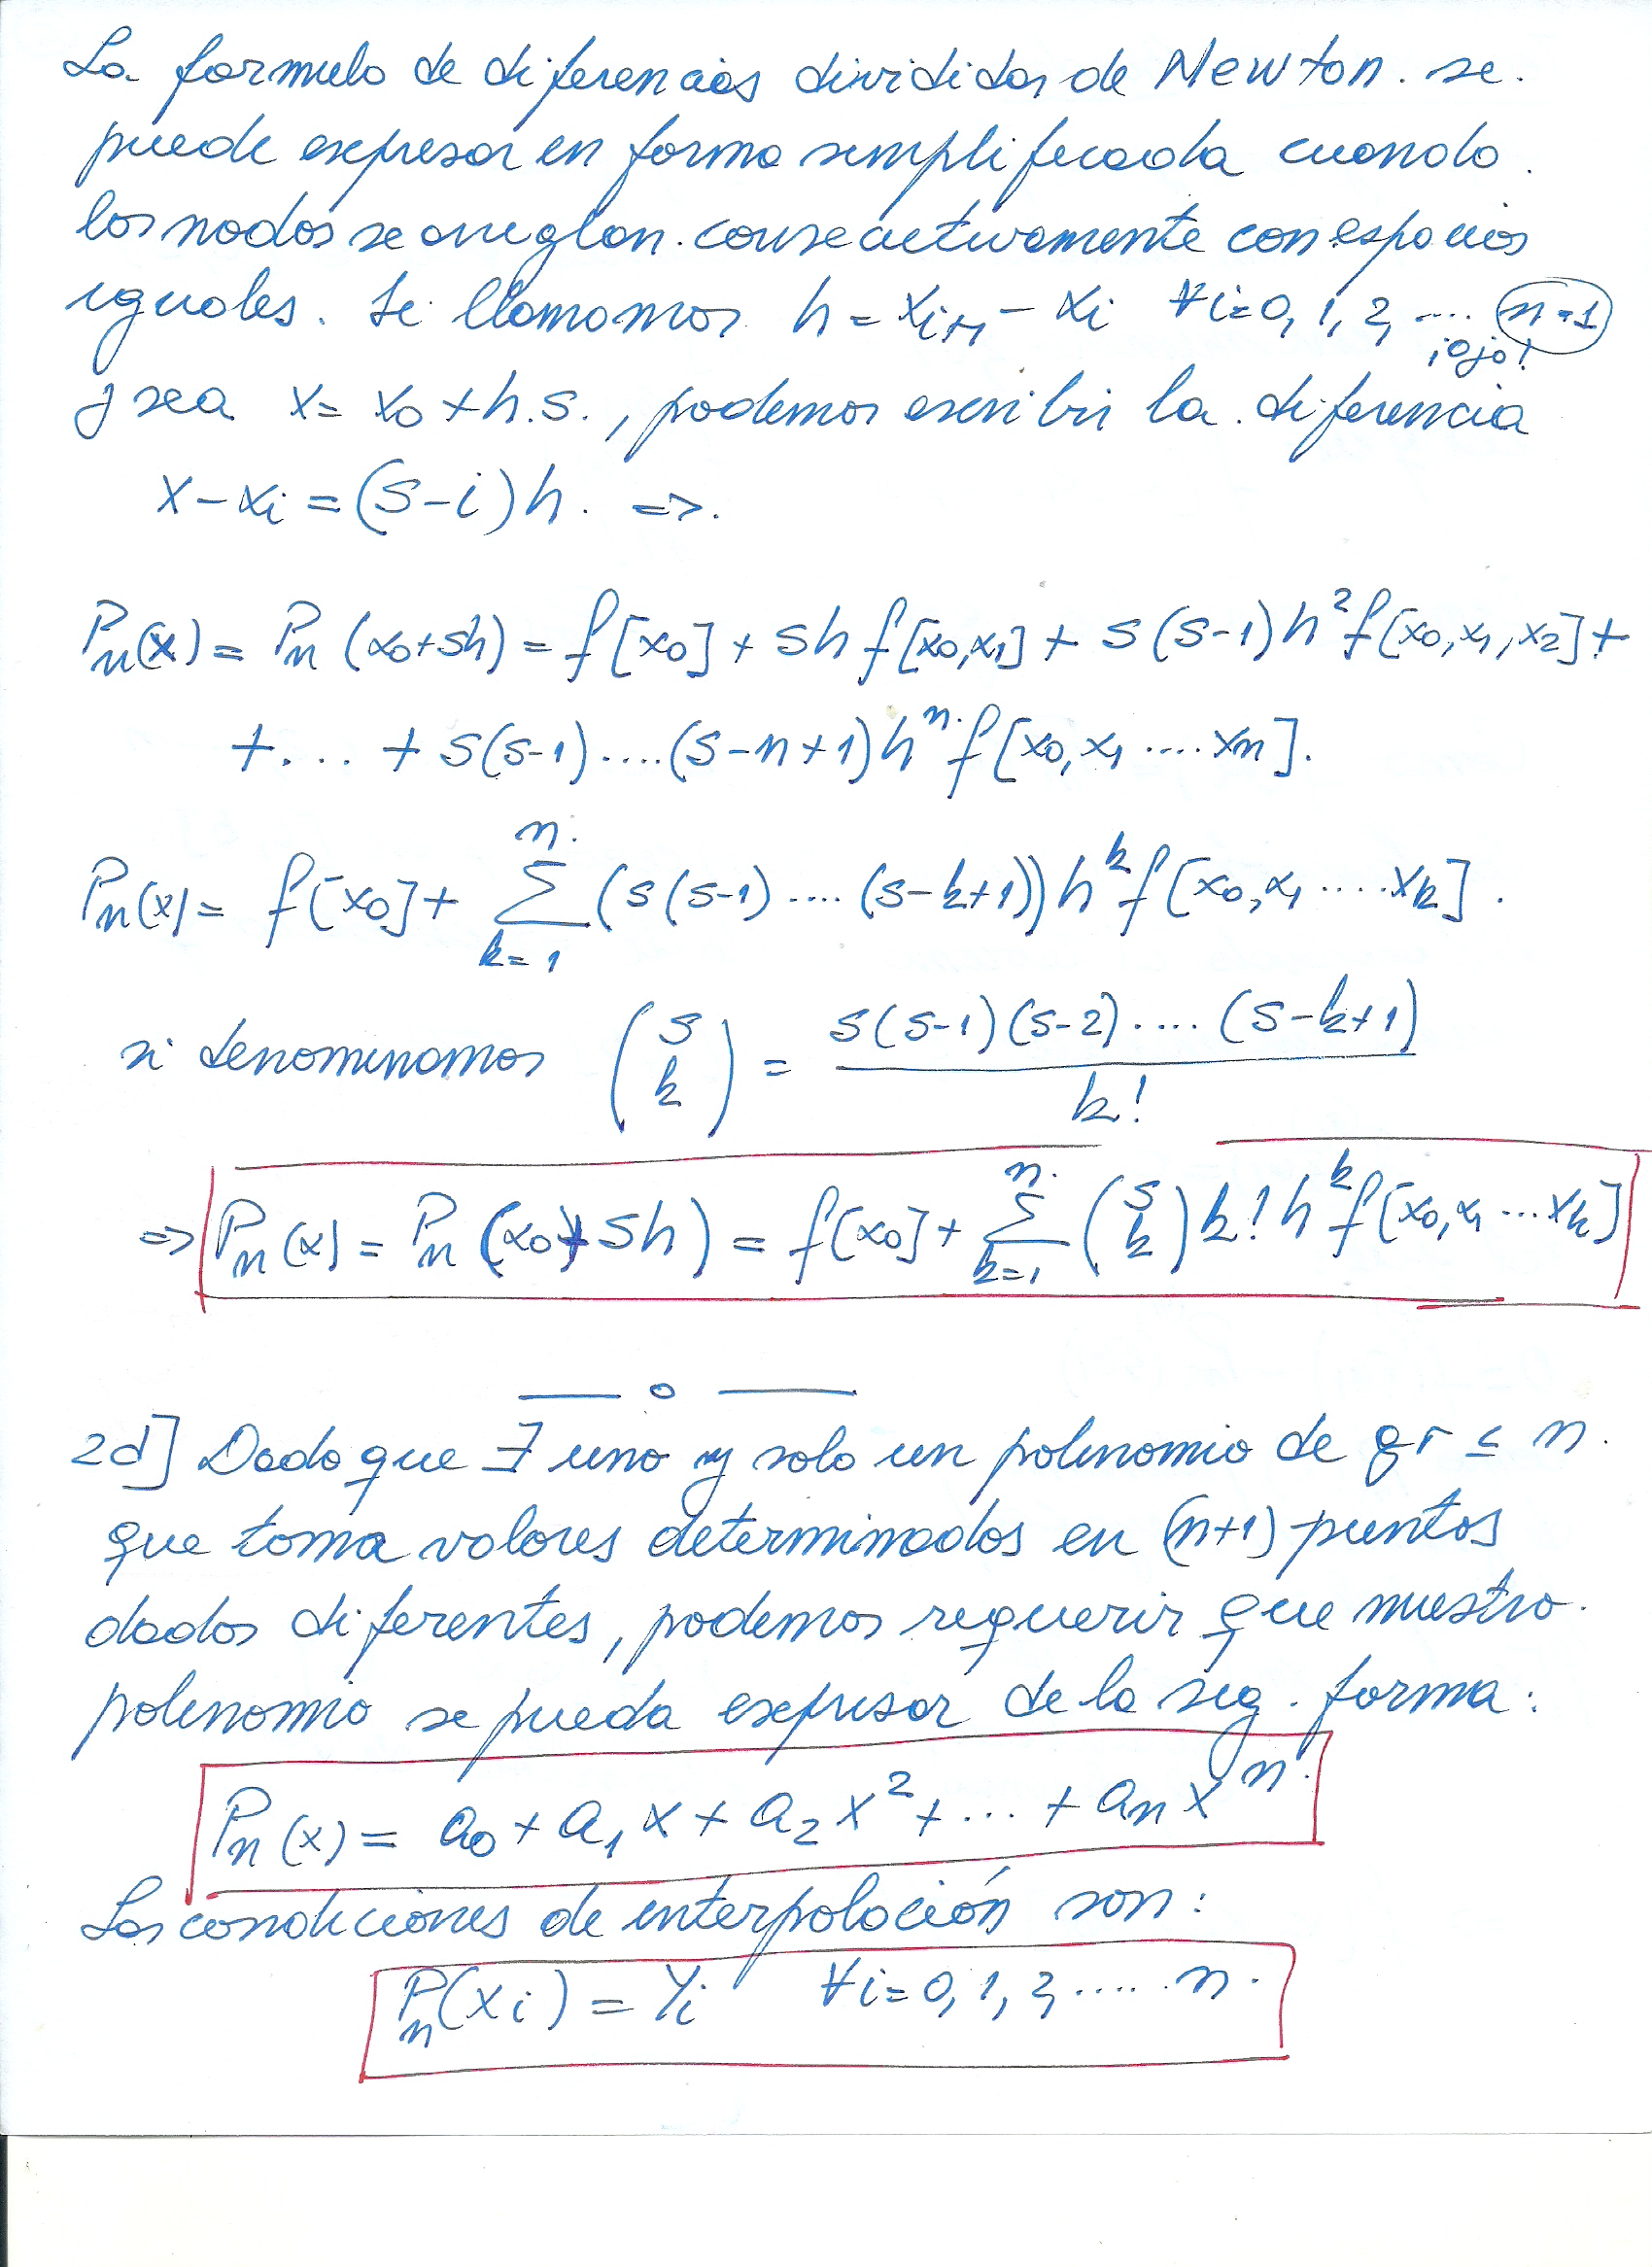 La formula de diferencias divididas de Newton. se.
puede expresar en forma simplificada cuando.
los nodos se arreglan. consecutivamente con espacios
iguales. Si llamamos h = x_{i+1} - x_i ∀i=0, 1, 2, .... n-1
¡ojo!
y sea x = x_0 + h.s., podemos escribir la diferencia
x - x_i = (s-i)h. =>.
P_n(x) = P_n(x_0+sh) = f[x_0] + sh f[x_0,x_1] + s(s-1)h^2 f[x_0,x_1,x_2] +
+ ... + s(s-1)....(s-n+1)h^n f[x_0,x_1 .... x_n].
P_n(x) = f[x_0] + \sum_{k=1}^{n} (s(s-1)....(s-k+1)) h^k f[x_0,x_1 .... x_k].
si denominamos \binom{s}{k} = \frac{s(s-1)(s-2)....(s-k+1)}{k!}
=> P_n(x) = P_n(x_0+sh) = f[x_0] + \sum_{k=1}^{n} \binom{s}{k} k! h^k f[x_0,x_1 ... x_k]
— o —
2d] Dado que ∃ uno y solo un polinomio de gr ≤ n.
que toma valores determinados en (n+1) puntos
dados diferentes, podemos requerir que nuestro.
polinomio se pueda expresar de la sig. forma:
P_n(x) = a_0 + a_1 x + a_2 x^2 + ... + a_n x^n.
Las condiciones de interpolación son:
P_n(x_i) = y_i ∀i=0, 1, 2, ..... n.